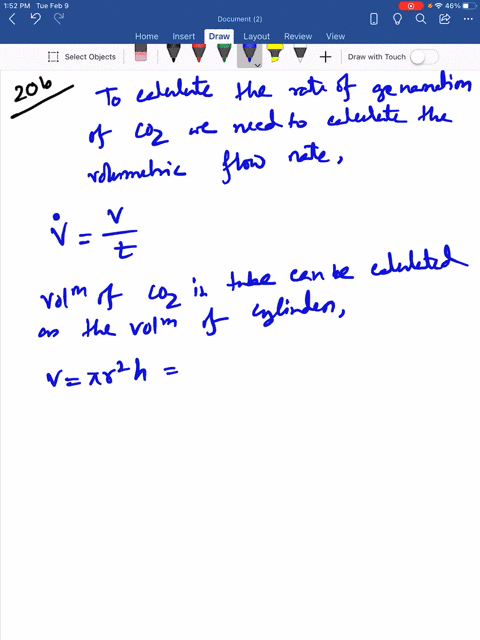 1:52 PM Tue Feb 9
46%
Document (2)
Home Insert Draw Layout Review View
Select Objects
Draw with Touch
206
To calculate the rate of generation
of CO2 we need to calculate the
volumetric flow rate,
V̇ = V/t
volm of CO2 in tube can be calculated
as the volm of cylinder,
V = πr²h =